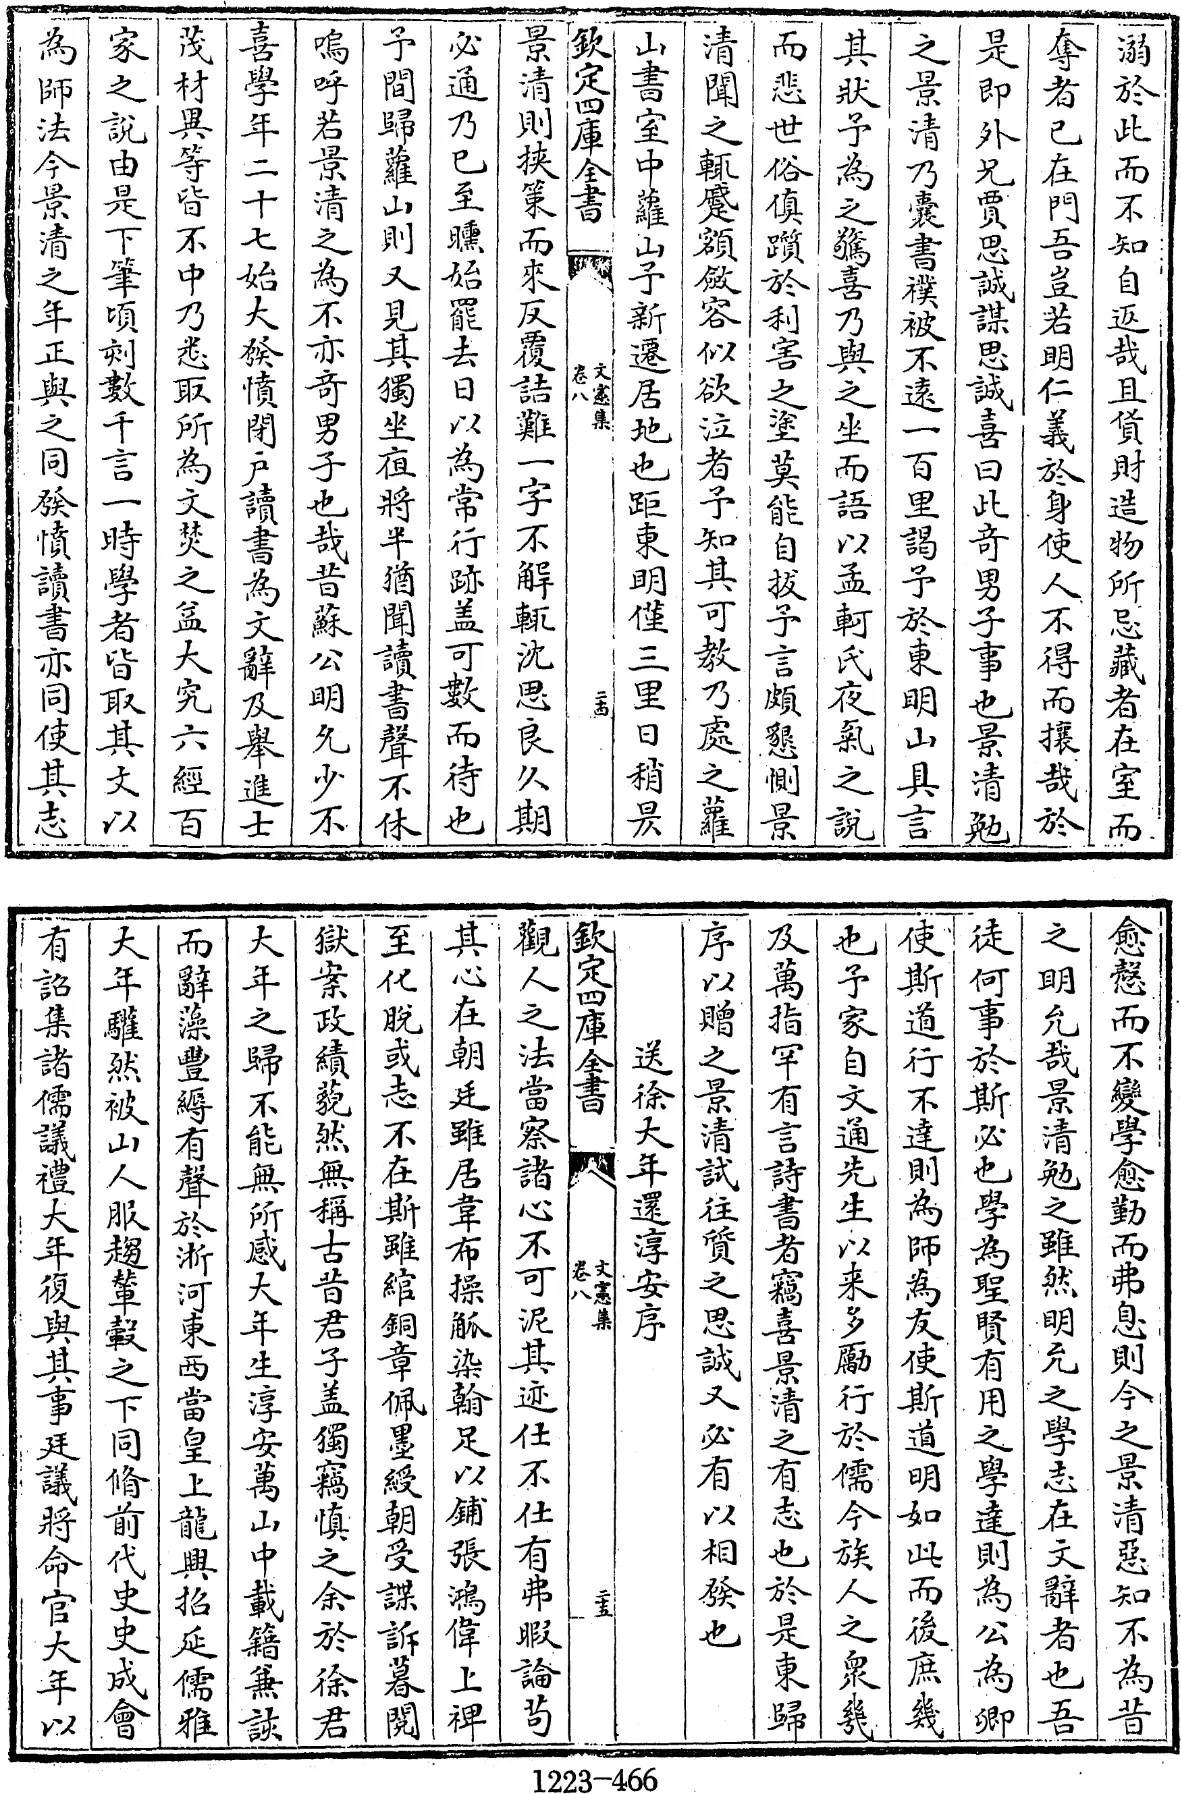 溺於此而不知自返哉且貨財造物所忌藏者在室而
奪者已在門吾豈若明仁義於身使人不得而攘哉於
是即外兄賈思誠謀思誠喜曰此奇男子事也景清勉
之景清乃囊書襆被不遠一百里謁予於東明山具言
其狀予為之驚喜乃與之坐而語以孟軻氏夜氣之說
而悲世俗傎躓於利害之塗莫能自拔予言頗懇惻景
清聞之輒蹙額斂容似欲泣者予知其可教乃處之蘿
山書室中蘿山予新遷居地也距東明僅三里日稍昃
欽定四庫全書
文憲集
卷八
二十四
景清則挾策而來反覆詰難一字不解輒沈思良久期
必通乃已至曛始罷去日以為常行跡盖可數而待也
予間歸蘿山則又見其獨坐夜將半猶聞讀書聲不休
嗚呼若景清之為不亦奇男子也哉昔蘇公明允少不
喜學年二十七始大發憤閉户讀書為文辭及舉進士
茂材異等皆不中乃悉取所為文焚之益大究六經百
家之說由是下筆頃刻數千言一時學者皆取其文以
為師法今景清之年正與之同發憤讀書亦同使其志
愈慤而不變學愈勤而弗息則今之景清惡知不為昔
之明允哉景清勉之雖然明允之學志在文辭者也吾
徒何事於斯必也學為聖賢有用之學達則為公為卿
使斯道行不達則為師為友使斯道明如此而後庶幾
也予家自文通先生以来多勵行於儒今族人之衆幾
及萬指罕有言詩書者竊喜景清之有志也於是東歸
序以贈之景清試往質之思誠又必有以相發也
送徐大年還淳安序
欽定四庫全書
文憲集
卷八
二十五
觀人之法當察諸心不可泥其迹仕不仕有弗暇論苟
其心在朝廷雖居韋布操觚染翰足以鋪張鴻偉上裨
至化脱或志不在斯雖綰銅章佩墨綬朝受諜訴暮閱
獄案政績藐然無稱古昔君子盖獨竊慎之余於徐君
大年之歸不能無所感大年生淳安萬山中載籍無該
而辭藻豐縟有聲於淛河東西當皇上龍興招延儒雅
大年驩然被山人服趨輦轂之下同脩前代史史成會
有詔集諸儒議禮大年復與其事廷議將命官大年以
1223-466